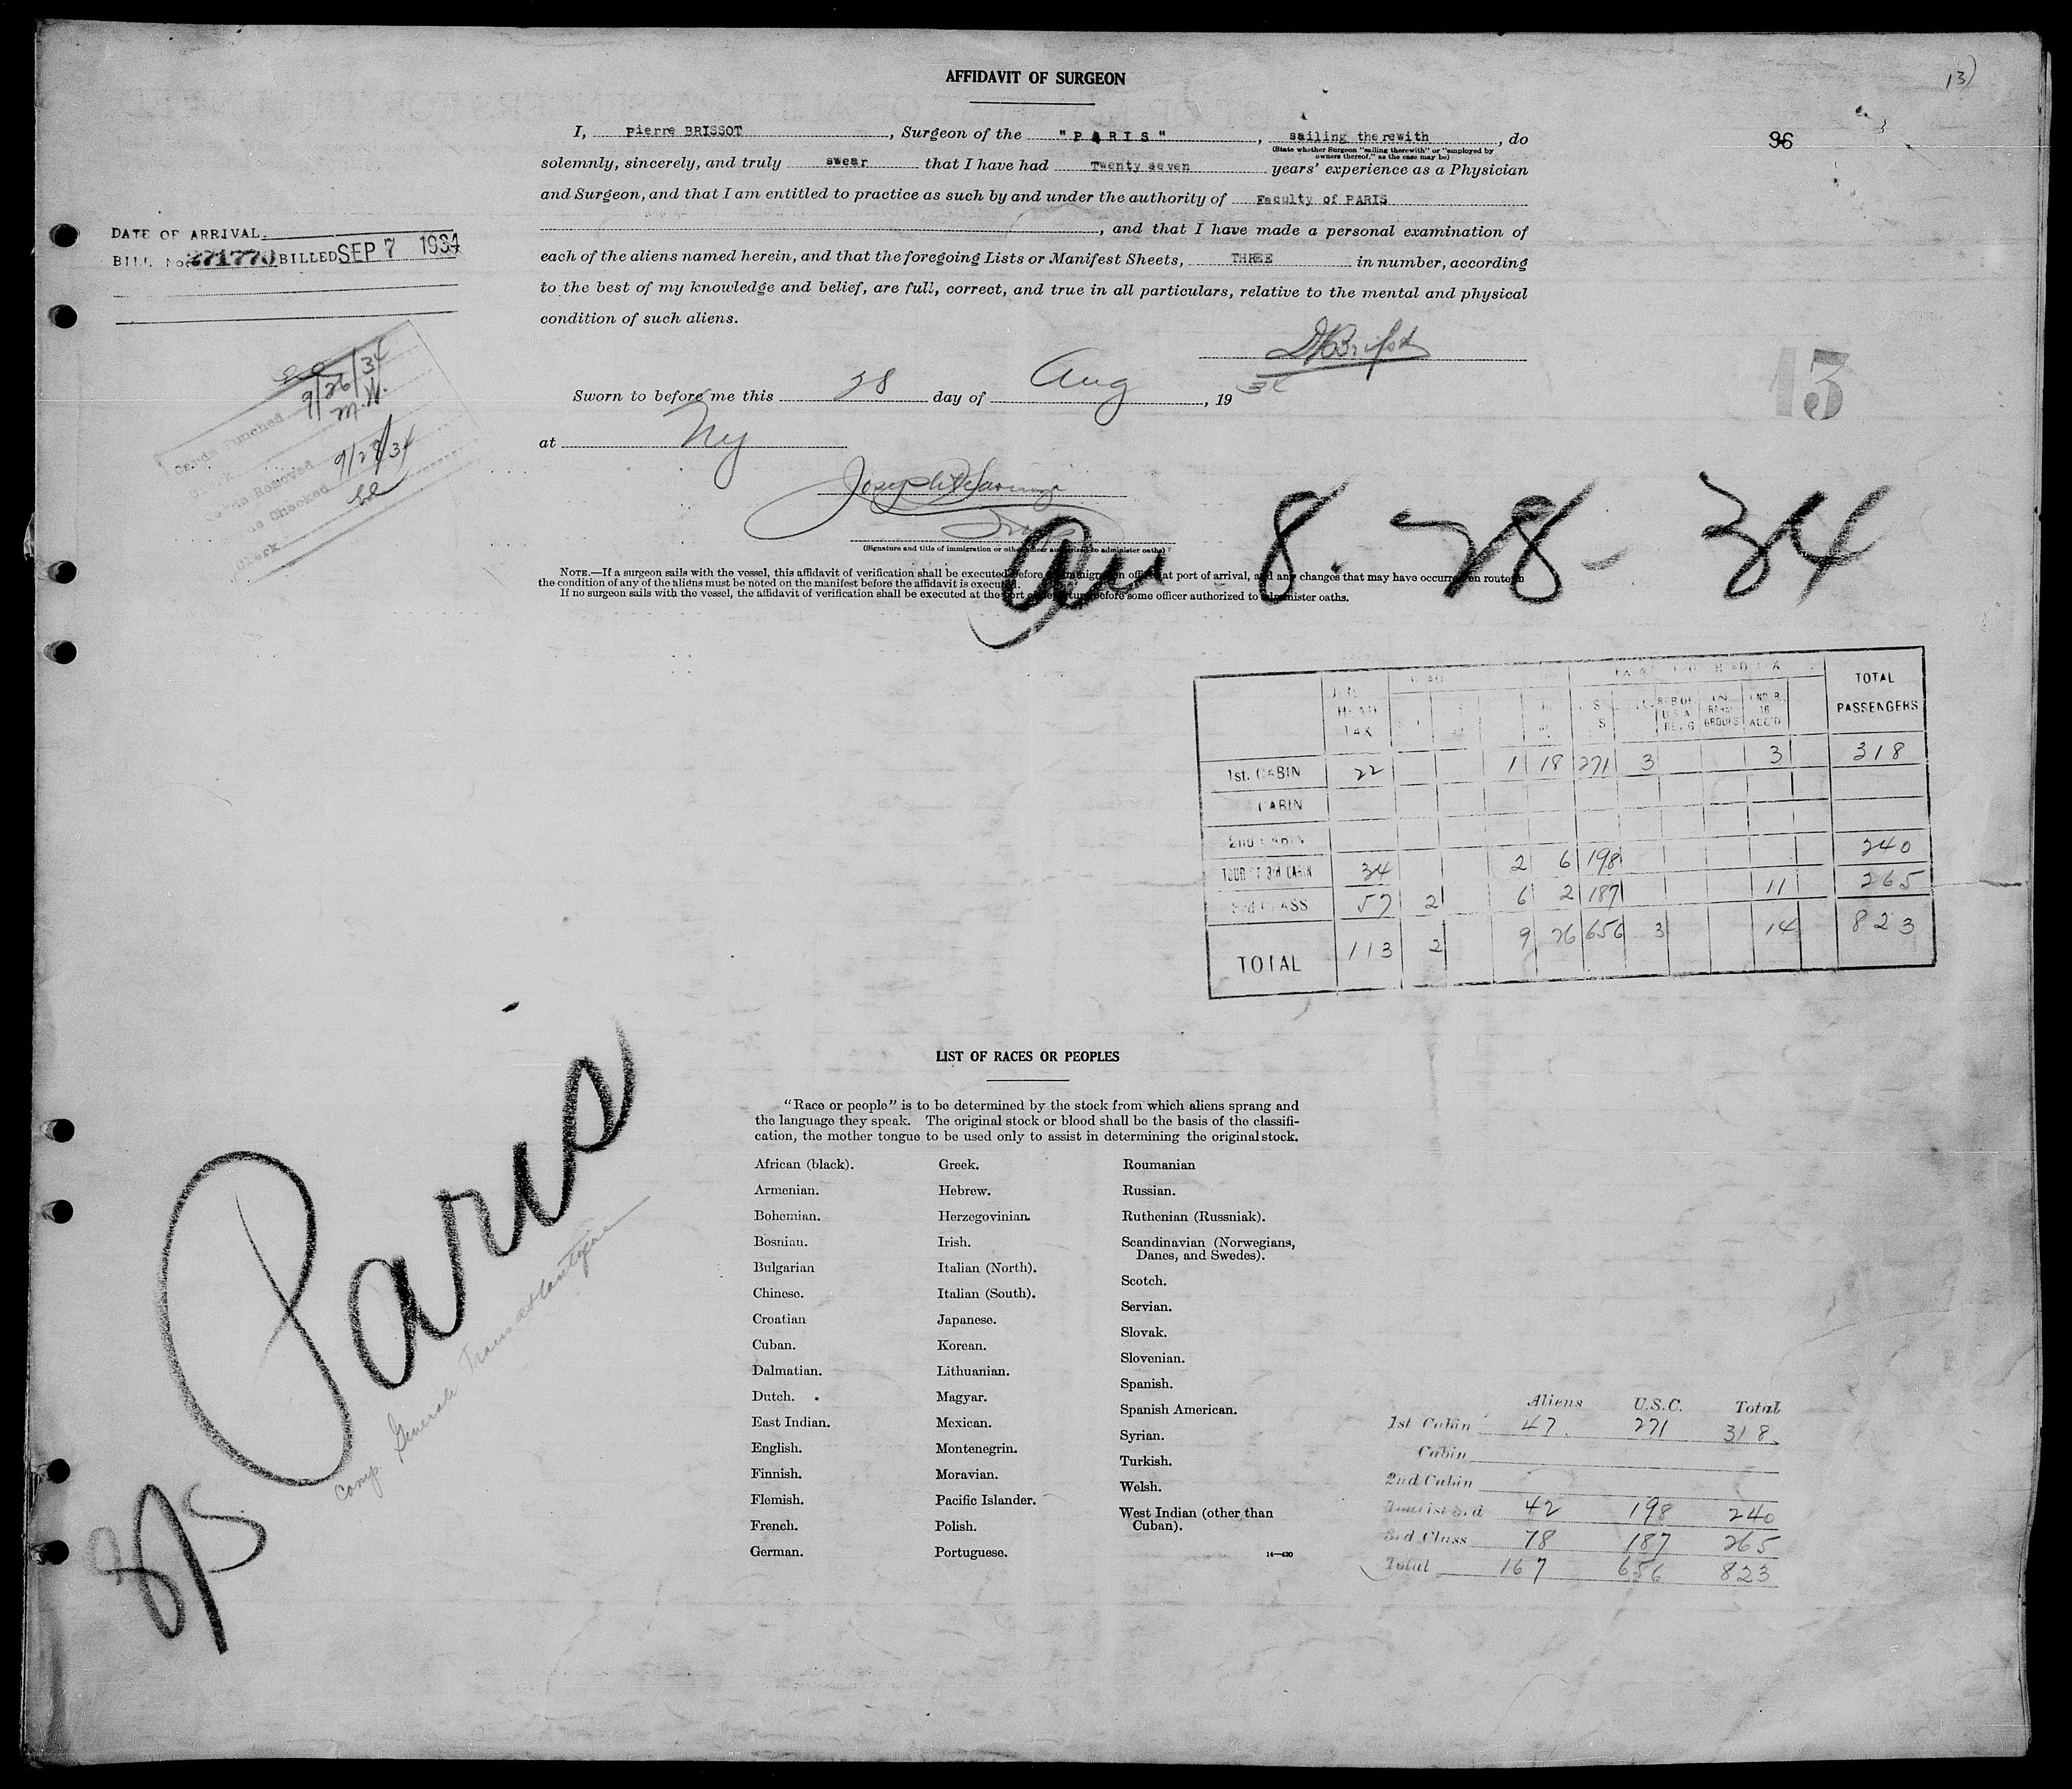 AFFIDAVIT OF SURGEON
13)
96
I, Pierre BRISSOT, Surgeon of the "PARIS", sailing therewith, do
(State whether Surgeon "sailing therewith" or "employed by
owners thereof," as the case may be)
solemnly, sincerely, and truly swear that I have had Twenty seven years' experience as a Physician
and Surgeon, and that I am entitled to practice as such by and under the authority of Faculty of PARIS
, and that I have made a personal examination of
each of the aliens named herein, and that the foregoing Lists or Manifest Sheets, THREE in number, according
to the best of my knowledge and belief, are full, correct, and true in all particulars, relative to the mental and physical
condition of such aliens.
DATE OF ARRIVAL
BILL No. 271770 BILLED SEP 7 1934
Cards Punched 9/26/34
M.W.
Removed
Checked 9/28/34
Clerk
Sworn to before me this 28 day of Aug, 19 34
at NY
13
(Signature and title of immigration or other officer authorized to administer oaths)
8-28-34
NOTE.—If a surgeon sails with the vessel, this affidavit of verification shall be executed before immigration officer at port of arrival, and any changes that may have occurred en route in
the condition of any of the aliens must be noted on the manifest before the affidavit is executed.
If no surgeon sails with the vessel, the affidavit of verification shall be executed at the port of departure before some officer authorized to administer oaths.
HEAD TAX REP OF U.S.A. GROUPS TOTAL PASSENGERS
1st. CABIN 22 1 18 271 3 3 318
CABIN
2nd CABIN
TOURIST 3rd CABIN 34 2 6 198 240
3rd CLASS 57 2 6 2 187 11 265
TOTAL 113 2 9 26 656 3 14 823
LIST OF RACES OR PEOPLES
"Race or people" is to be determined by the stock from which aliens sprang and
the language they speak. The original stock or blood shall be the basis of the classifi-
cation, the mother tongue to be used only to assist in determining the original stock.
African (black).
Armenian.
Bohemian.
Bosnian.
Bulgarian
Chinese.
Croatian
Cuban.
Dalmatian.
Dutch.
East Indian.
English.
Finnish.
Flemish.
French.
German.
Greek.
Hebrew.
Herzegovinian.
Irish.
Italian (North).
Italian (South).
Japanese.
Korean.
Lithuanian.
Magyar.
Mexican.
Montenegrin.
Moravian.
Pacific Islander.
Polish.
Portuguese.
Roumanian
Russian.
Ruthenian (Russniak).
Scandinavian (Norwegians,
Danes, and Swedes).
Scotch.
Servian.
Slovak.
Slovenian.
Spanish.
Spanish American.
Syrian.
Turkish.
Welsh.
West Indian (other than
Cuban).
14—430
Paris
Comp. Generale Transatlantique
Aliens U.S.C. Total
1st Cabin 47 271 318
Cabin
2nd Cabin
Tourist 3rd 42 198 240
3rd Class 78 187 265
Total 167 656 823